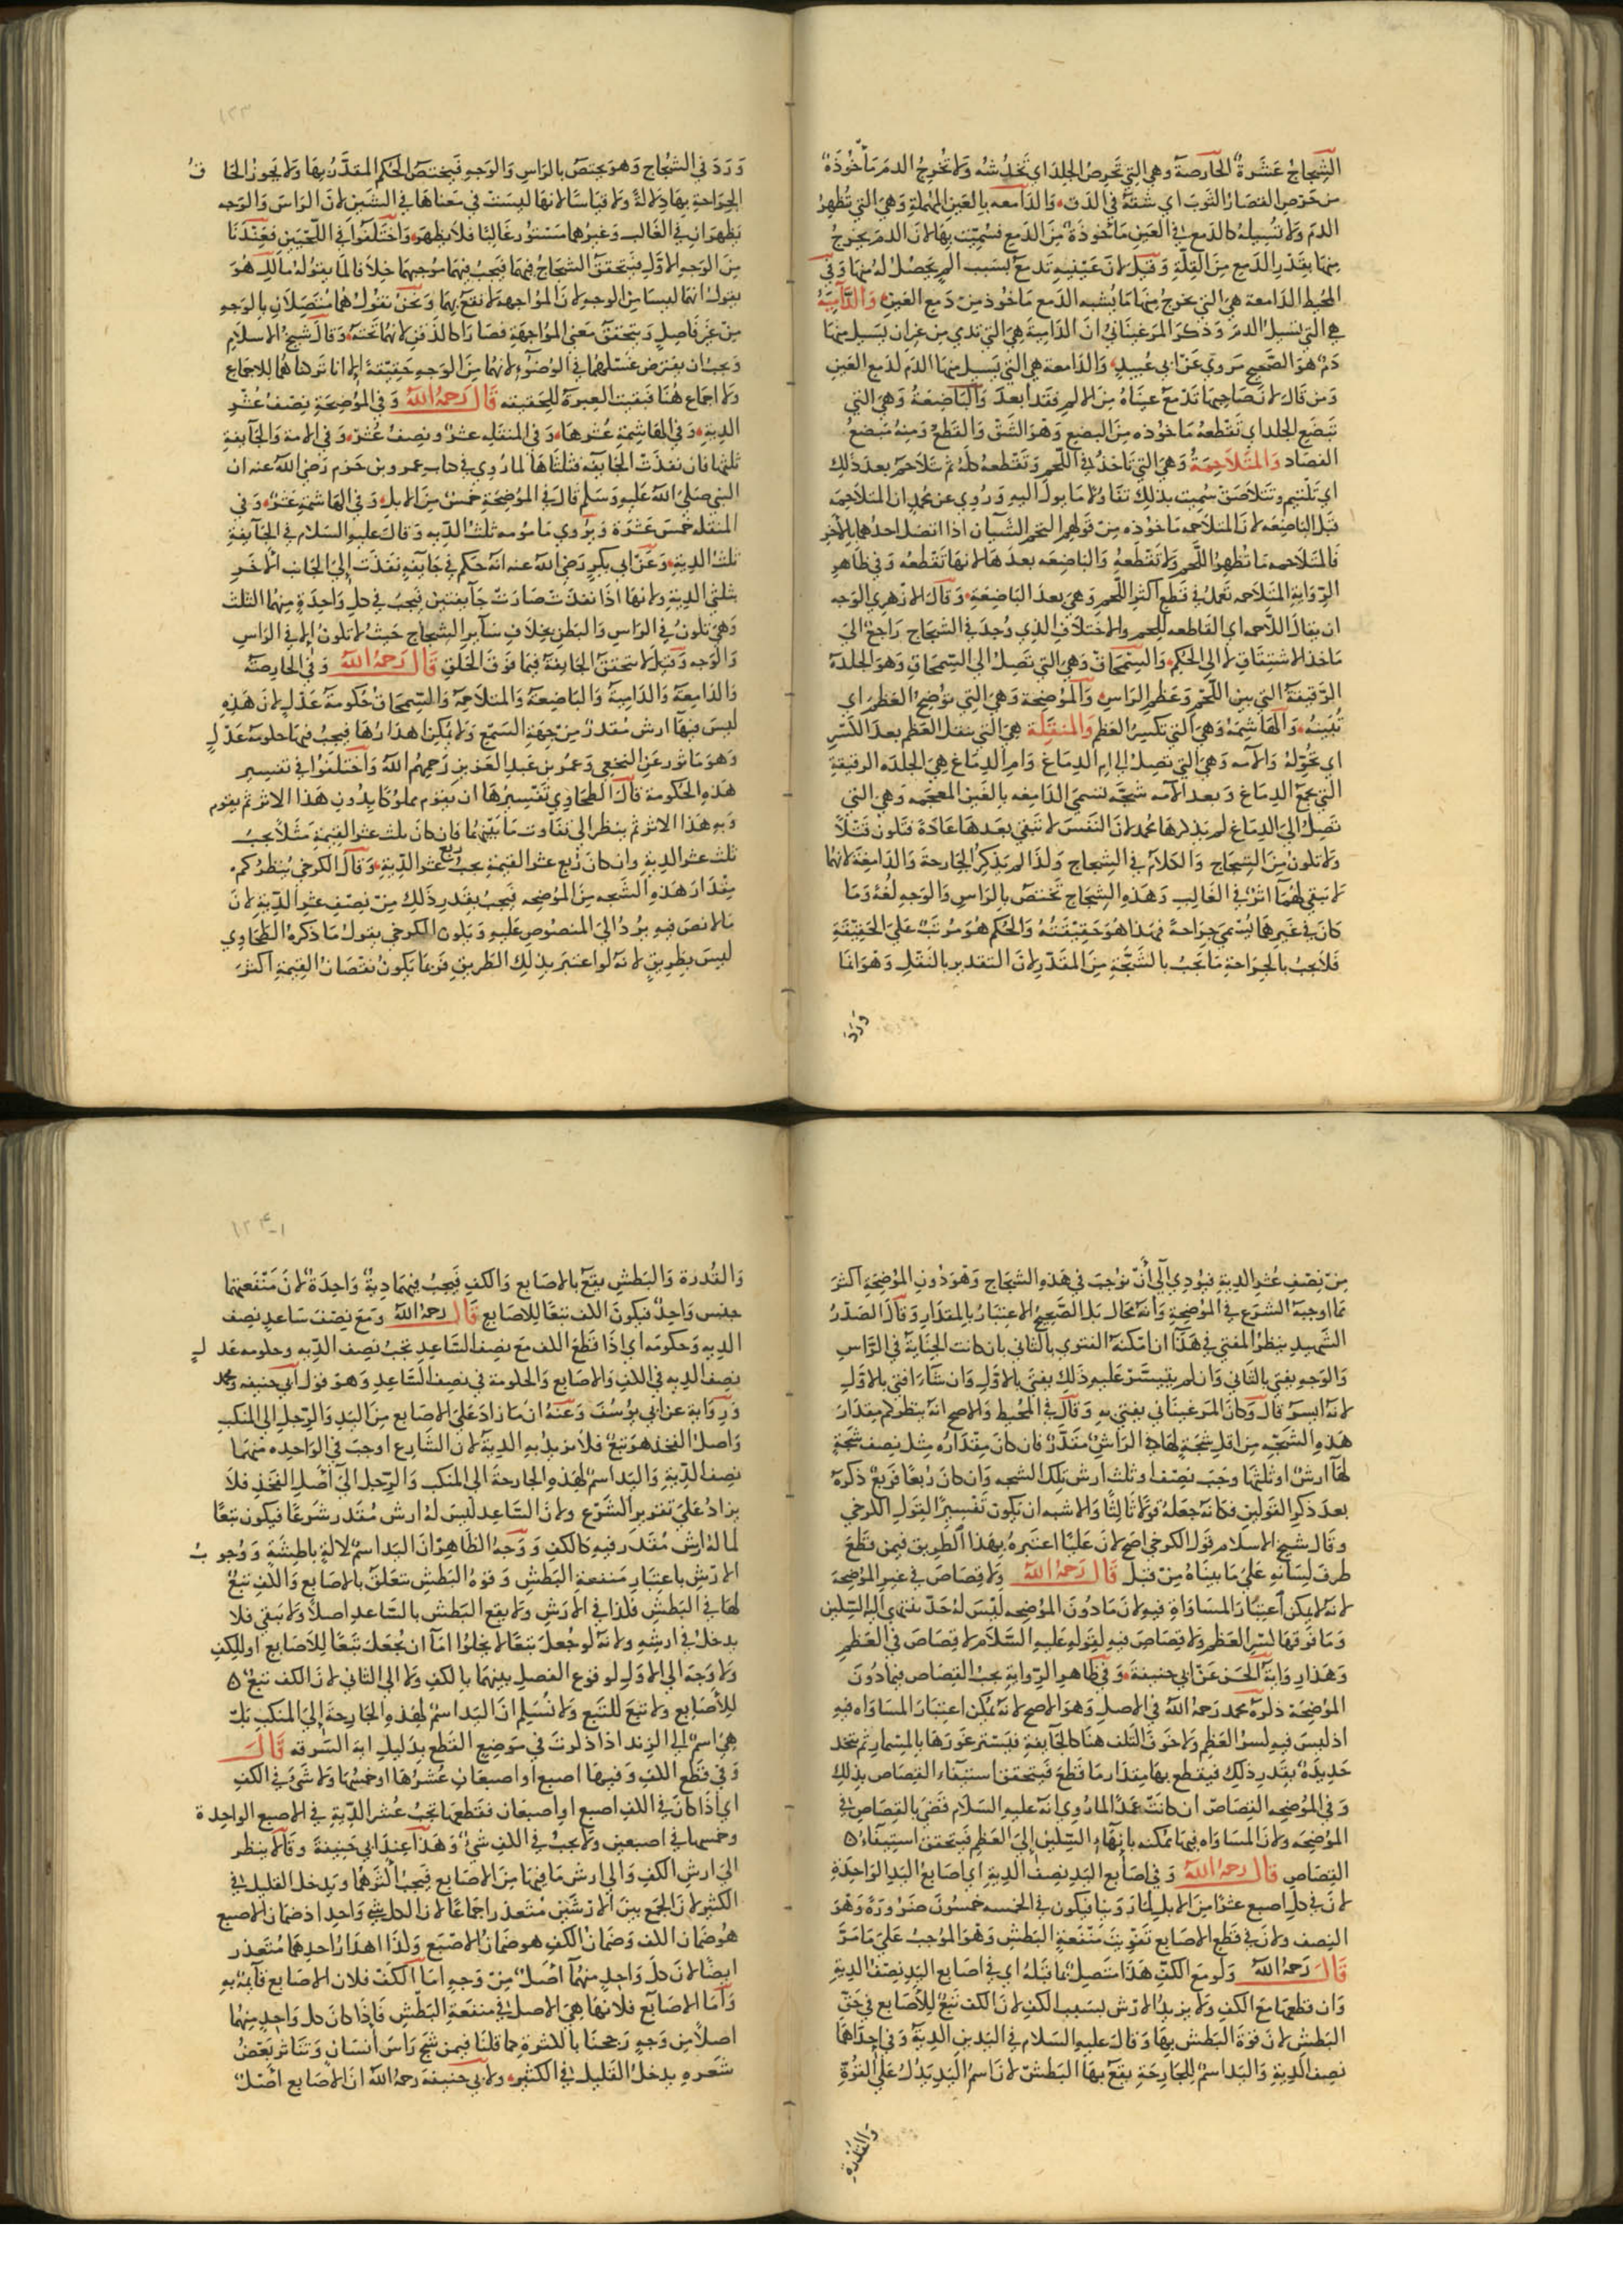 الشجاج عشرة الحارصة وهي التي تحرص الجلد اي تخدشه ولا تخرج الدم مأخوذة
من حرص القصار الثوب اي شقه في الدق والدامعه بالعين المهملة وهي التي تظهر
الدم ولا تسيله كالدمع في العين مأخوذة من الدمع فسميت بها لان الدم يخرج
منها بقدر الدمع من القلة وقيل لان عينيه تدمع بسبب الم يحصل له منها وفي
المحيط الدامعة هي التي يخرج منها ما يشبه الدمع مأخوذ من دمع العين والدامية
هي التي يسيل الدم وذكر المرغيناني ان الدامية هي التي تدمي من غير ان يسيل منها
دم هو الصحيح مروي عن ابي عبيد والدامعة هي التي يسيل منها الدم كدمع العين
ومن قال لان صاحبها تدمع عيناه من الالم فقد ابعد والباضعة وهي التي
تبضع الجلد اي تقطعه مأخوذه من البضع وهو الشق والقطع ومنه مبضع
الفصاد والمتلاحمة وهي التي تاخذ في اللحم وتقطعه كله ثم يتلاحم بعد ذلك
اي تلتيم وتتلاصق سميت بذلك تفاؤلا ما يول اليه وروي عن محمد ان المتلاحمه
قبل الباضعه لان المتلاحمه ماخوذه من قولهم التحم الشيآن اذا اتصل احدهما بالاخر
فالمتلاحمه ما تظهر اللحم ولا تقطعه والباضعه بعدها لانها تقطعه وفي ظاهر
الرواية المتلاحمه تعمل في قطع اكثر اللحم وهي بعد الباضعة وقال الازهري الوجه
ان يقال اللاحمه اي القاطعه للحم والاختلاف الذي وجد في الشجاج راجع الي
ماخذ الاشتقاق لا الي الحكم والسمحاق وهي التي تصل الي السمحاق وهو الجلدة
الرقيقة التي بين اللحم وعظم الراس والموضحة وهي التي توضح العظم اي
تبينه والهاشمة وهي التي تكسر العظم والمنقلة هي التي تنقل العظم بعد الكسر
اي تحوله والآمه وهي التي تصل الي ام الدماغ وام الدماغ هي الجلده الرقيقة
التي تجمع الدماغ وبعد الامه شجة تسمي الدامغه بالغين المعجمه وهي التي
تصل الي الدماغ لم يذكرها محمد لان النفس لا تبقي بعدها عادة فتكون قتلا
ولا تكون من الشجاج والكلام في الشجاج ولذا لم يذكر الحارصة والدامعة لانهما
لا يبقي لهما اثر في الغالب وهذه الشجاج تختص بالراس والوجه لغة وما
كان في غيرهما يسمي جراحة فهذا هو حقيقته والحكم هو مرتب علي الحقيقة
فلا يجب بالجراحة ما يجب بالشجة من المقدر لان التقدير بالنقل وهو انما
ورد
١٢٣
ورد في الشجاج وهو يختص بالراس والوجه فيختص الحكم المقدر بها ولا يجوز الحاق
الجراحة بها دلالة ولا قياسا لانها ليست في معناها في الشين لان الراس والوجه
يظهران في الغالب وغيرهما مستور غالبا فلا يظهر واختلفوا في اللحيين فعندنا
من الوجه الاول فيتحقق الشجاج فيهما فيجب فيهما موجبهما خلافا لما يقوله مالك هو
يقول انهما ليسا من الوجه لان المواجهة لا تقع بهما ونحن نقول هما متصلان بالوجه
من غير فاصل ويتحقق معني المواجهة فصارا كالذقن لانهما تحته وقال شيخ الاسلام
ويجب ان يفترض غسلهما في الوضوء لانهما من الوجه حقيقة الا انا تركناهما للاجماع
ولا اجماع هنا فبقيت العبرة للحقيقه قال رحمه الله وفي الموضحة نصف عشر
الدية وفي الهاشمة عشرها وفي المنقله عشر ونصف عشر وفي الامة والجآيفة
ثلثها فان نفذت الجايفه فثلثاها لما روي في كتاب عمرو بن حزم رضي الله عنه ان
النبي صلي الله عليه وسلم قال في الموضحة خمس من الابل وفي الهاشمة عشر وفي
المنقله خمس عشرة ويروي مامومه ثلث الديه وقال عليه السلام في الجآيفة
ثلث الدية وعن ابي بكر رضي الله عنه انه حكم في جايفه نفذت إلي الجانب الاخر
بثلثي الدية ولانها اذا نفذت صارت جآيفتين فيجب في كل واحدة منهما الثلث
وهي تكون في الراس والبطن بخلاف سآير الشجاج حيث لا تكون الا في الراس
والوجه وقيل لا تتحقق الجايفة فيما فوق الحلق قال رحمه الله وفي الحارصة
والدامعة والدامية والباضعة والمتلاحمة والسمحاق حكومة عدل لان هذه
ليس فيها ارش مقدر من جهة السمع ولا يمكن اهدارها فيجب فيها حكومة عدل
وهو ماثور عن النخعي وعمر بن عبد العزيز رحمهم الله واختلفوا في تفسير
هذه الحكومة قال الطحاوي تفسيرها ان يقوم مملوكا بدون هذا الاثر ثم يقوم
وبه هذا الاثر ثم ينظر الي تفاوت ما بينهما فان كان ثلث عشر القيمة مثلا يجب
ثلث عشر الدية وان كان ربع عشر القيمة يجب ربع عشر الدية وقال الكرخي ينظر كم
مقدار هذه الشجه من الموضحه فيجب بقدر ذلك من نصف عشر الدية لان
ما لا نص فيه يرد الي المنصوص عليه ويكون الكرخي يقول ما ذكره الطحاوي
ليس بطريق لانه لو اعتبر بذلك الطريق فربما يكون نقصان القيمة اكثر
من نصف عشر الدية فيؤدي الي أن يوجب في هذه الشجاج وهو دون الموضحة اكثر
مما اوجبه الشرع في الموضحة وانه محال بل الصحيح الاعتبار بالمقدار وقال الصدر
الشهيد ينظر المفتي في هذا ان امكنه الفتوي بالثاني بان كانت الجناية في الراس
والوجه يفتي بالثاني وان لم يتيسر عليه ذلك يفتي بالاول وان شآء افتي بالاول
لانه ايسر قال وكان المرغيناني يفتي به وقال في المحيط والاصح انه ينظر كم مقدار
هذه الشجه من اقل شجة لها ارش مقدر فان كان مقداره مثل نصف شجة
لها ارش او ثلثها وجب نصف او ثلث ارش تلك الشجه وان كان ربعا فربع ذكره
بعد ذكر القولين فكانه جعله قولا ثالثا والاشبه ان يكون تفسيرا لقول الكرخي
وقال شيخ الاسلام قول الكرخي اصح لان عليا اعتبره بهذا الطريق فيمن قطع
طرف لسانه علي ما بيناه من قبل قال رحمه الله ولا قصاص في غير الموضحة
لانه لا يمكن اعتبار المساواة فيه لان ما دون الموضحه ليس له حد تنتهي اليه السكين
وما فوقها كسر العظم ولا قصاص فيه لقوله عليه السلام لا قصاص في العظم
وهذا رواية الحسن عن ابي حنيفة وفي ظاهر الرواية يجب القصاص فيما دون
الموضحة ذكره محمد رحمه الله في الاصل وهو الاصح لانه يمكن اعتبار المساواه فيه
اذ ليس فيه كسر العظم ولا خوف التلف هنا كالجآيفة فيسبر غورها بالمسبار ثم يتخذ
حديدة بقدر ذلك فيقطع بها مقدار ما قطع فيتحقق استيفاء القصاص بذلك
وفي الموضحه القصاص ان كانت عمدا لما روي انه عليه السلام قضي بالقصاص في
الموضحه ولان المساواه فيها ممكنه بانهاء السكين إلي العظم فيتحقق استيفاء
القصاص قال رحمه الله وفي اصابع اليد نصف الدية اي اصابع اليد الواحدة
لان في كل اصبع عشرا من الابل لما روينا فيكون في الخمسه خمسون ضرورة وهو
النصف ولان في قطع الاصابع تفويت منفعة البطش وهو الموجب علي ما مر
قال رحمه الله ولو مع الكف هذا متصل بما قبله اي في اصابع اليد نصف الدية
وان قطعها مع الكف ولا يزيد الارش بسبب الكف لان الكف تبع للأصابع في حق
البطش لان قوة البطش بها وقال عليه السلام في اليدين الدية وفي إحداهما
نصف الدية واليد اسم للجارحة يقع بها البطش لان اسم اليد يدل علي القوة
والقدرة
١٢٤-١
والقدرة والبطش يقع بالاصابع والكف فيجب فيهما دية واحدة لان منفعتهما
جنس واحد فيكون الكف تبعا للاصابع قال رحمه الله ومع نصف ساعد نصف
الديه وحكومه اي اذا قطع الكف مع نصف الساعد يجب نصف الديه وحكومه عدل
نصف الديه في الكف والاصابع والحكومة في نصف الساعد وهو قول ابي حنيفه ومحمد
ورواية عن ابي يوسف وعنه ان ما زاد علي الاصابع من اليد والرجل الي المنكب
واصل الفخذ هو تبع فلا يزيد به الدية لان الشارع اوجب في الواحده منهما
نصف الدية واليد اسم لهذه الجارحة الي المنكب والرجل الي أصل الفخذ فلا
يزاد علي تقدير الشرع ولان الساعد ليس له ارش مقدر شرعا فيكون تبعا
لما له ارش مقدر فيه كالكف ووجه الظاهر ان اليد اسم لآلة باطشة ووجوب
الارش باعتبار منفعة البطش وقوة البطش يتعلق بالاصابع والكف تبع
لها في البطش فكذا في الارش ولا يقع البطش بالساعد اصلا ولا تبقي فلا
يدخل في ارشه ولانه لو جعل تبعا لا يخلوا امآ ان يجعل تبعا للأصابع او للكف
ولا وجه الي الاول لوقوع الفصل بينهما بالكف ولا الي الثاني لان الكف تبع
للأصابع ولا تبع للتبع ولا نسلم ان اليد اسم لهذه الجارحة إلي المنكب بل
هي اسم الي الزند اذا ذكرت في موضع القطع بدليل اية السرقه قال
وفي قطع الكف وفيها اصبع او اصبعان عشرها او خمسها ولا شيء في الكف
اي إذا كان في الكف اصبع او اصبعان فقطعها يجب عشر الدية في الاصبع الواحدة
وخمسها في اصبعين ولا يجب في الكف شيء وهذا عند ابي حنيفة وقالا ينظر
الي ارش الكف والي ارش ما فيها من الاصابع فيجب اكثرهما ويدخل القليل في
الكثير لان الجمع بين الارشين متعذر اجماعا لان الكل شي واحد اذ ضمان الاصبع
هو ضمان الكف وضمان الكف هو ضمان الاصبع ولذا اهدار احدهما متعذر
ايضا لان كل واحد منهما اصل من وجه اما الكف فلان الاصابع قآيمة به
وأما الاصابع فلانها هي الاصل في منفعة البطش فاذا كان كل واحد منهما
اصلا من وجه رجحنا بالكثرة كما قلنا فيمن شج راس انسان وتناثر بعض
شعره يدخل القليل في الكثير ولابي حنيفة رحمه الله ان الاصابع اصل